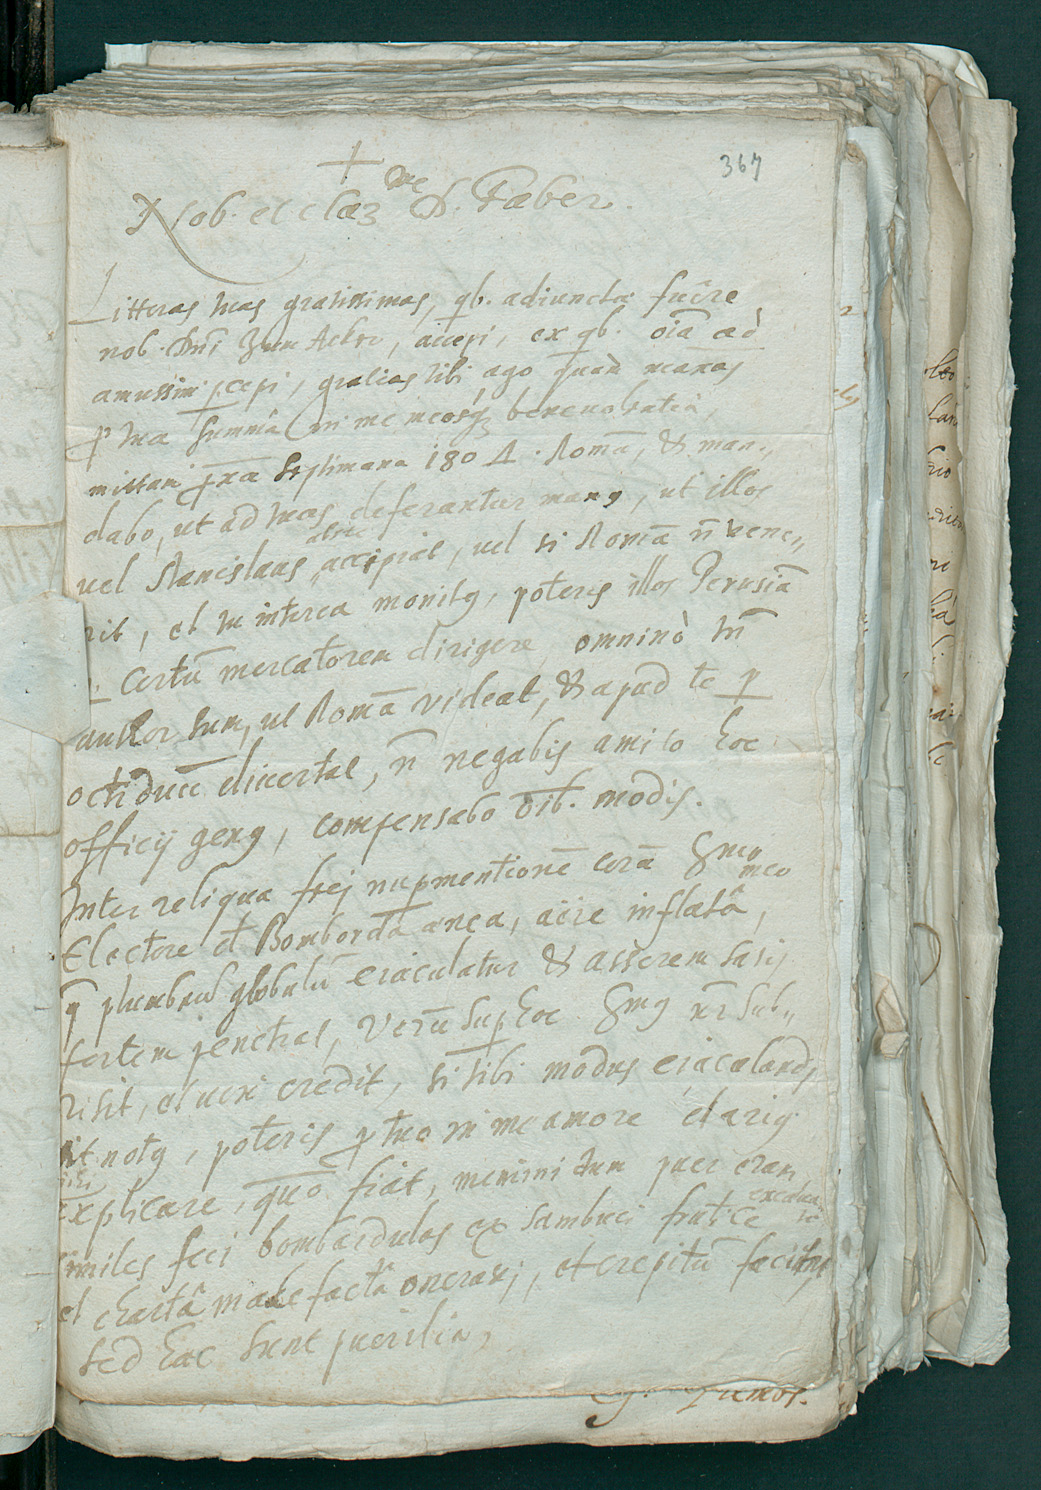 367
+
Nob. et claz me D. Faber.
Litteras tuas gratissimas, qb. adiunctae fuere
nob. Dni Zum Acker, accepi, ex qb. oia ad
amussim pcepi, gratias tibi ago quàm maxas
p tua summâ in me meosq beneuolentia,
mittam pxa septimana 180 Δ. Româ, & man„
dabo, ut ad tuas deferantur manus, ut illos
uel Stanislaus abire accipiat, uel si Romã ñ uene„
rit, et tu interea monitus, poteris illos Perusiã
certũ mercatorem dirigere, omninò tñ
author sum, ut Romã videat, & apud te p
octiduũ diuertat, ñ negabis amico hoc
officij genus, compensabo oib. modis.
Inter reliqua feci nup mentionẽ corã Smo
meo
Electore de Bombarda aenea, aëre inflatâ,
q plumbeũ globulũ eiaculatur & asserem satis
fortem penetrat, Verũ sup hoc Smus nr sub„
risit, et uix credit, si tibi modus eiaculandj
sit notus, poteris p tuo in me amore et
explicare, quõ fiat, memini dum puer eram
similes feci bombardulas ex sambuci frutice excauata
et chartâ madefactâ oneravj, et crepitũ
sed haec sunt puerilia,